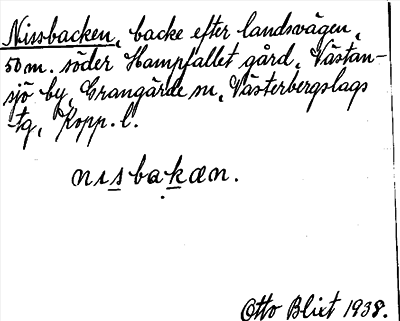 Nissbacken, backe efter landsvägen,
50 m. söder Hampfallet gård, Västan-
sjö by, Grangärde sn, Västerbergslags
tg, Kopp. l.
nisbakæn.
Otto Blixt 1938.